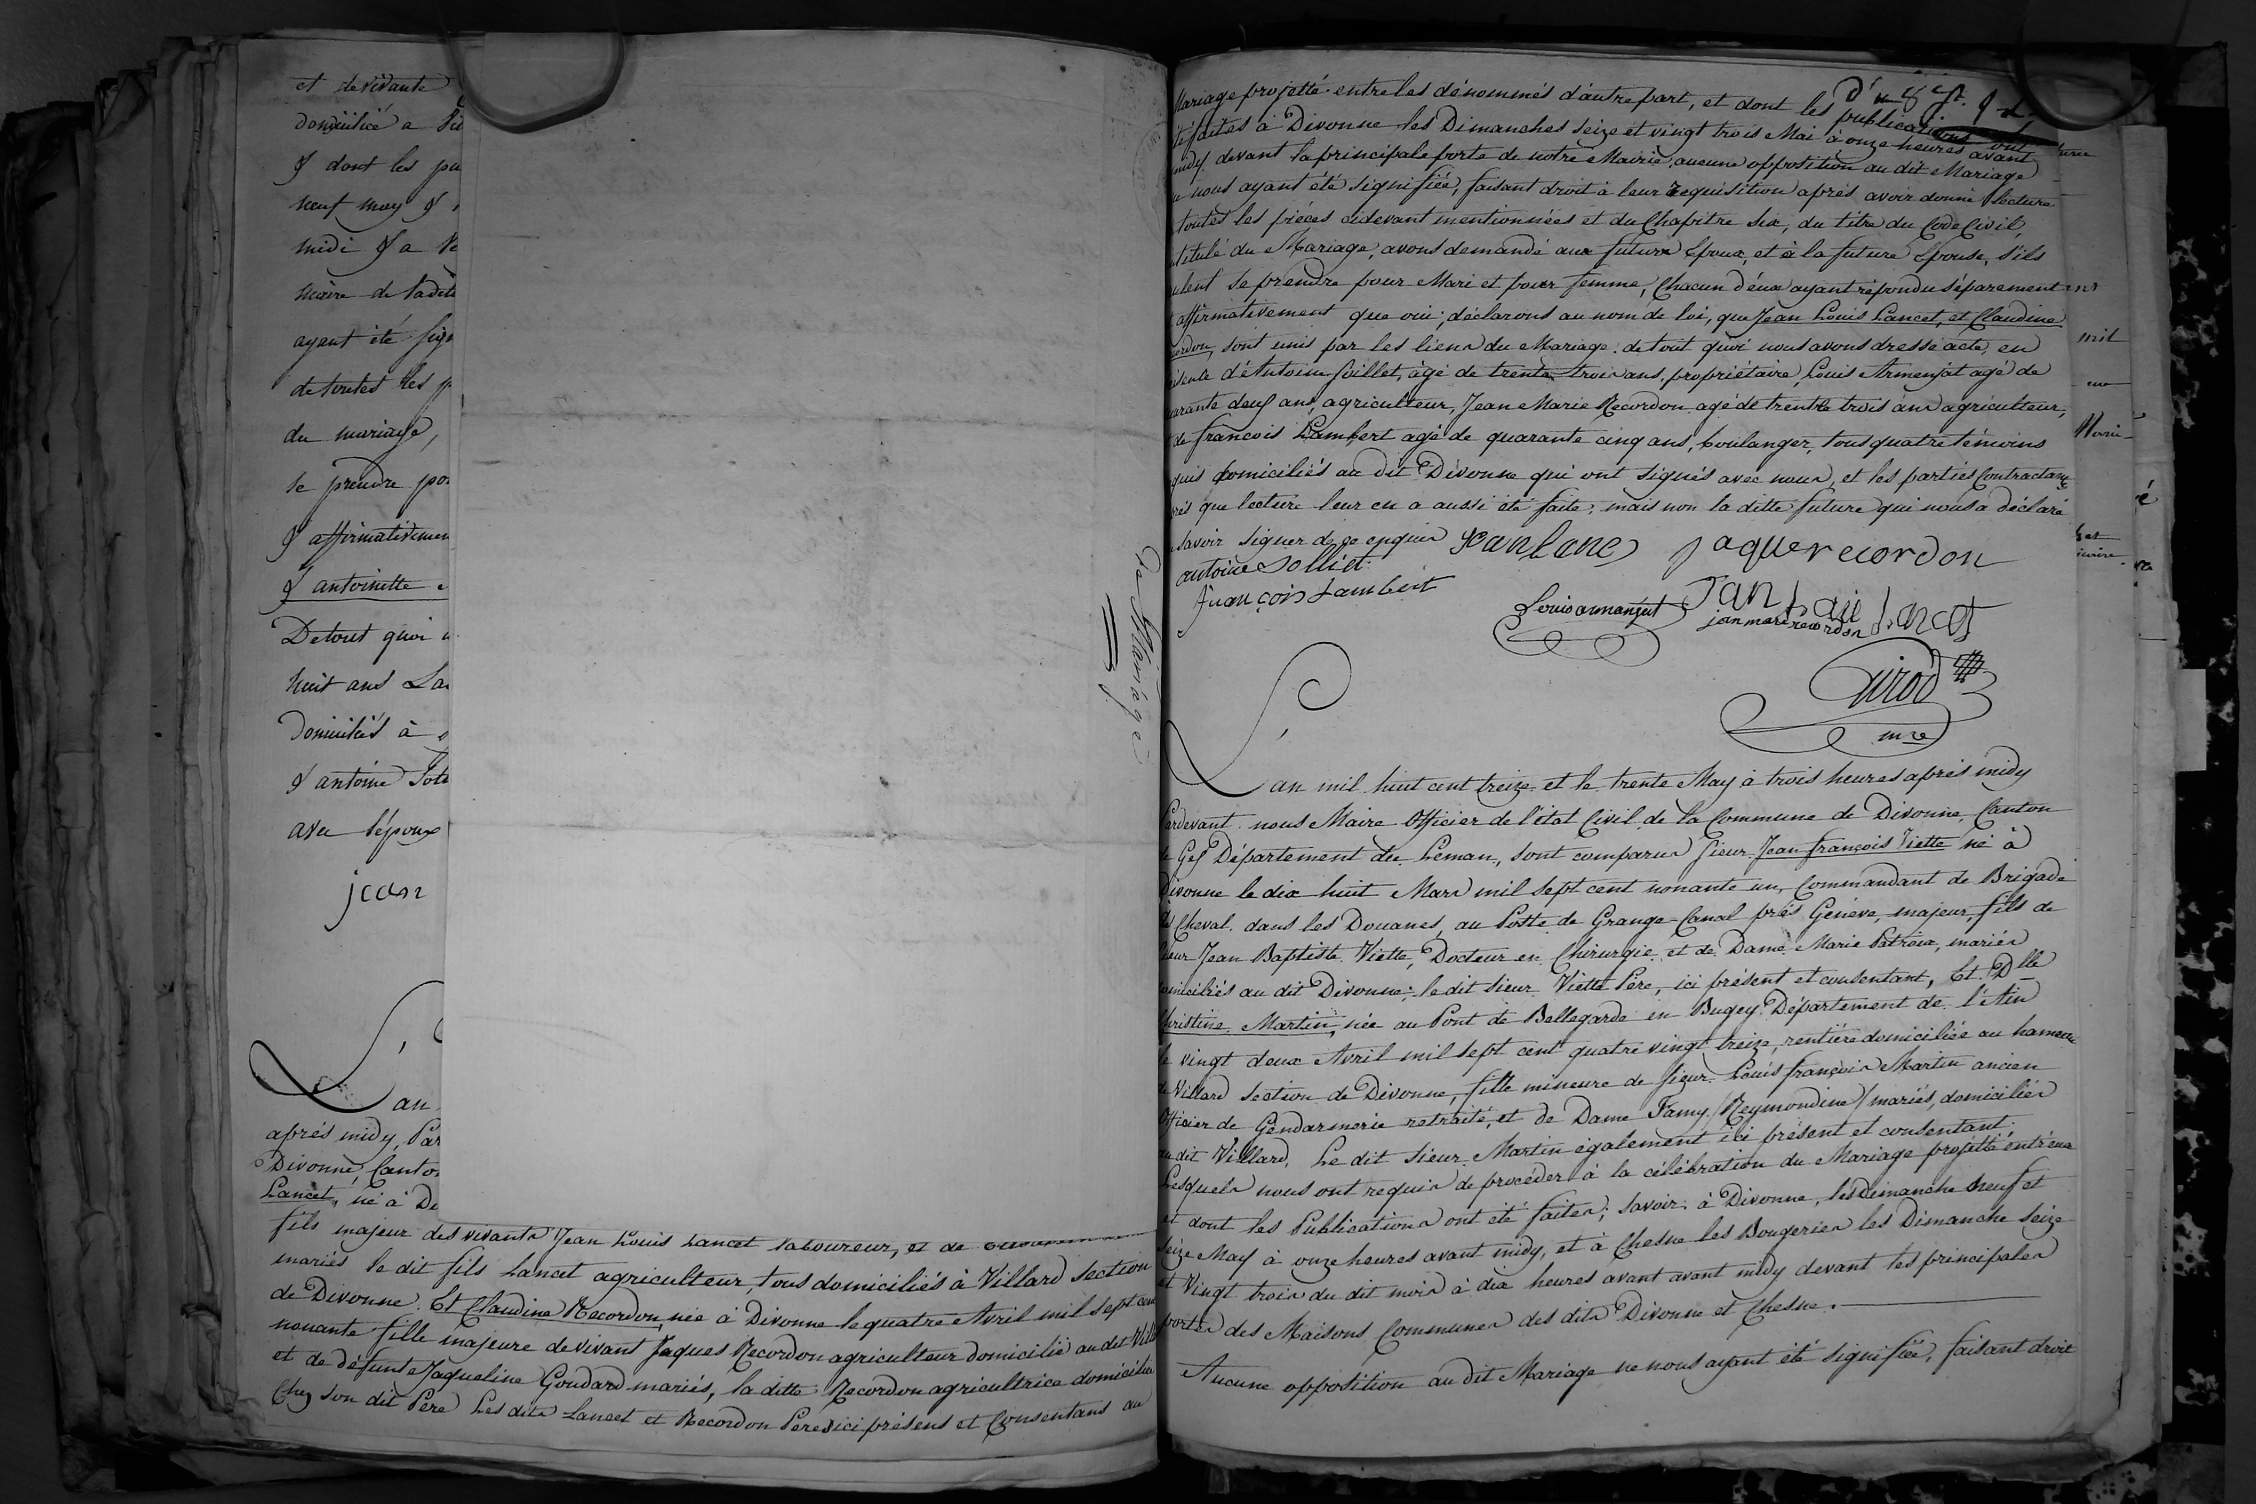 et de vivante
domicilié a
& dont les pu
neuf may &
midi & a
maire de ladite
ayant été sign
de toutes les p
du mariage,
se prendre pou
& affirmativemen
& antoinette
De tout quoi
huit ans La
Domiciliés à
& antoine
avec l'époux
jean
L'an
aprés midy, Par
Divonne, Canton
Lancet, né à Di
fils majeur des vivants Jean Louis Lancet laboureur, et de
mariés le dit fils Lancet agriculteur, tous domiciliés à Villard section
de Divonne. Et Claudine Recordon née à Divonne le quatre Avril mil sept cent
nonante fille majeure de vivant Jaques Recordon agriculteur domicilié au dit Vill
et de défunte Jaqueline Goudard mariés, la ditte Recordon agricultrice domiciliée
Chez son dit Père Les dits Lancet et Recordon Peres ici présens et Consentans au
De Mariage
Mariage projetté entre les dénommés d'autre part, et dont les publications ont
été faites à Divonne les Dimanches seize et vingt trois Mai à onze heures avant
midy devant la principale porte de notre Mairie, aucune opposition au dit Mariage
ne nous ayant été signifiée, faisant droit à leur requisition aprés avoir donné lecture
toutes les pièces cidevant mentionnées et du Chapitre six, du titre du Code Civil,
intitulé du Mariage, avons demandé aux future Epoux, et à la future Epouse, s'ils
veulent se prendre pour Mari et pour femme, Chacun d'eux ayant répondu séparement
affirmativement que oui; déclarons au nom de loi, que Jean Louis Lancet, et Claudine
Recordon, sont unis par les liens du Mariage. de tout quoi nous avons dressé acte, en
présence d'Antoine Solliet, âgé de trente trois ans, propriétaire, Louis Armenjat agé de
quarante deux ans, agriculteur, Jean Marie Recordon agé de trentre trois ans agriculteur,
de françois Lambert agé de quarante cinq ans, boulanger, tous quatre témoins
requis domiciliés au dit Divonne qui ont signés avec nous, et les parties Contractans
après que lecture leur en a aussi été faite; mais non la ditte future qui nous a déclaré
savoir signer de ce enquis jean lance jaque recordon
antoine Solliet
François Lambert
Louis armanjat Jan Loui Lancet
jan mari recordon
Girod
mre
L'an mil huit cent treize et le trente May à trois heures après midy
Pardevant nous Maire Officier de l'état Civil de la Commune de Divonne, Canton
de Gex Département du Leman, sont comparus sieur Jean françois Viette né à
Divonne le dix huit Mars mil sept cent nonante un, Commandant de Brigade
à Cheval dans les Douanes, au Poste de Grange-Canal près Genève, majeur, fils de
sieur Jean Baptiste Viette, Docteur en Chirurgie et de Dame Marie Patroix, mariés
domiciliés au dit Divonne; le dit sieur Viette Père, ici présent et consentant, Et Dlle
Christine Martin, née au Pont de Bellegarde en Bugey Département de l'Ain
le vingt deux Avril mil sept cent quatre vingt treize, rentière domiciliée au hameau
de Villard section de Divonne, fille mineure de sieur Louis françois Martin ancien
Officier de Gendarmerie retraité, et de Dame Famy (Reymondine) mariés, domiciliés
au dit Villard, Le dit sieur Martin également ici présent et consentant.
Lesquels nous ont requis de procéder à la célébration du Mariage projetté entr'eux
et dont les Publications ont été faites; savoir: à Divonne, les Dimanche neuf et
seize May à onze heures avant midy, et à Chesne les Bougeries les Dimanche seize
et Vingt trois du dit mois à dix heures avant avant midy devant les principales
portes des Maisons Communes des dits Divonne et Chesne.
Aucune opposition au dit Mariage ne nous ayant été signifiée, faisant droit